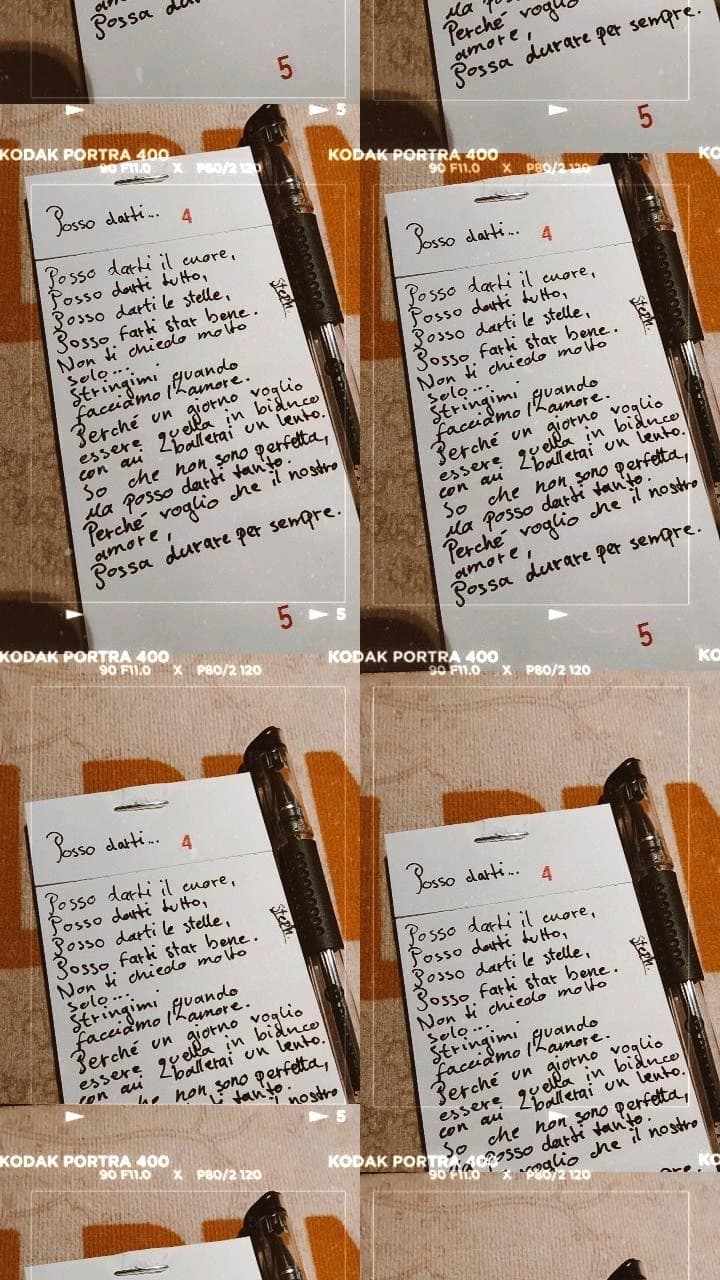 Possa du
5
5
KODAK PORTRA 400
90 F11.0 X P80/2 120
Posso darti... 4
Posso darti il cuore,
Posso darti tutto,
Posso darti le stelle,
Posso farti star bene.
Non ti chiedo molto
solo...
Stringimi quando
facciamo l'amore.
Perché un giorno voglio
essere quella in bianco
con cui ballerai un lento.
So che non sono perfetta,
Ma posso darti tanto.
Perché voglio che il nostro
amore,
Possa durare per sempre.
Steph.
5
5
KODAK PORTRA 400
90 F11.0 X P80/2 120
Posso darti... 4
Posso darti il cuore,
Posso darti tutto,
Posso darti le stelle,
Posso farti star bene.
Non ti chiedo molto
solo...
Stringimi quando
facciamo l'amore.
Perché un giorno voglio
essere quella in bianco
con cui ballerai un lento.
che non sono perfetta,
tanto.
il nostro
Steph.
5
KODAK PORTRA 400
90 F11.0 X P80/2 120
Ma
Perché voglio
amore,
Possa durare per sempre.
5
KODAK PORTRA 400
90 F11.0 X P80/2 120
Posso darti... 4
Posso darti il cuore,
Posso darti tutto,
Posso darti le stelle,
Posso farti star bene.
Non ti chiedo molto
solo...
Stringimi quando
facciamo l'amore.
Perché un giorno voglio
essere quella in bianco
con cui ballerai un lento.
So che non sono perfetta,
Ma posso darti tanto.
Perché voglio che il nostro
amore,
Possa durare per sempre.
Steph.
5
KODAK PORTRA 400
90 F11.0 X P80/2 120
Posso darti... 4
Posso darti il cuore,
Posso darti tutto,
Posso darti le stelle,
Posso farti star bene.
Non ti chiedo molto
solo...
Stringimi quando
facciamo l'amore.
Perché un giorno voglio
essere quella in bianco
con cui ballerai un lento.
So che non sono perfetta,
Ma posso darti tanto.
voglio che il nostro
Steph.
KODAK PORTRA 400
90 F11.0 X P80/2 120